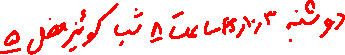 دوشنبه ۲۵/۱۰/۳ ساعت ۸ شب کوئیز فصل ۵